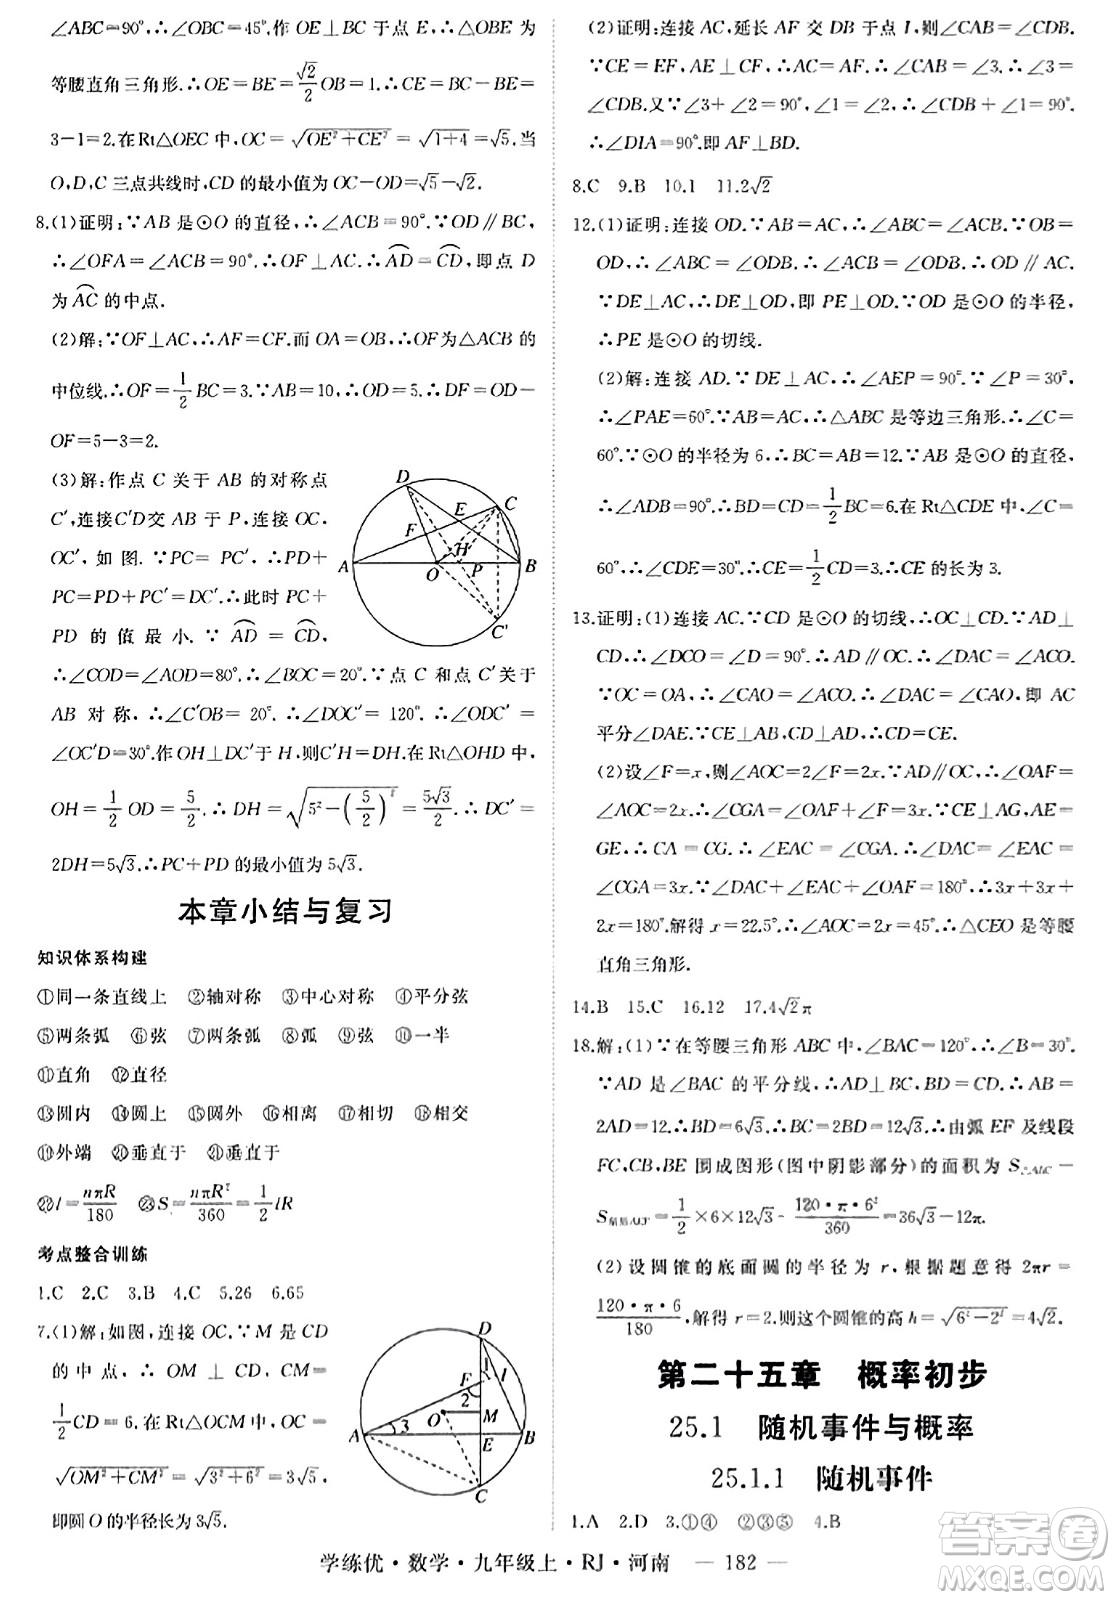 ∠ABC=90°,∴∠OBC=45°.作 OE⊥BC 于点 E,∴△OBE 为
等腰直角三角形.∴OE=BE=√2/2 OB=1.∴CE=BC-BE=
3-1=2.在 Rt△OEC 中,OC=√(OE²+CE²)=√(1+4)=√5.当
O,D,C 三点共线时,CD 的最小值为 OC-OD=√5-√2.
8.(1)证明:∵AB 是⊙O 的直径,∴∠ACB=90°.∵OD∥BC,
∴∠OFA=∠ACB=90°.∴OF⊥AC.∴AD=CD,即点 D
为AC 的中点.
(2)解:∵OF⊥AC,∴AF=CF.而 OA=OB,∴OF为△ACB 的
中位线.∴OF=1/2 BC=3.∵AB=10,∴OD=5.∴DF=OD-
OF=5-3=2.
(3)解:作点 C 关于 AB 的对称点
C′,连接C′D交 AB 于 P,连接OC,
OC′,如图.∵PC=PC′,∴PD+
PC=PD+PC′=DC′.∴此时 PC+
PD 的值最小.∵AD=CD,
∴∠COD=∠AOD=80°.∴∠BOC=20°.∵点 C 和点 C′关于
AB 对称,∴∠C′OB=20°.∴∠DOC′=120°.∴∠ODC′=
∠OC′D=30°.作OH⊥DC′于 H,则C′H=DH.在Rt△OHD 中,
OH=1/2 OD=5/2.∴DH=√(5²-(5/2)²)=5√3/2.∴DC′=
2DH=5√3.∴PC+PD的最小值为5√3.
D
C
E
F
H
A
O
P
B
C′
本章小结与复习
知识体系构建
①同一条直线上 ②轴对称 ③中心对称 ④平分弦
⑤两条弧 ⑥弦 ⑦两条弧 ⑧弧 ⑨弦 ⑩一半
⑪直角 ⑫直径
⑬圆内 ⑭圆上 ⑮圆外 ⑯相离 ⑰相切 ⑱相交
⑲外端 ⑳垂直于 ㉑垂直于
㉒l=nπR/180 ㉓S=nπR²/360=1/2 lR
考点整合训练
1.C 2.C 3.B 4.C 5.26 6.65
7.(1)解:如图,连接 OC.∵M 是 CD
的中点,∴OM⊥CD,CM=
1/2 CD=6.在Rt△OCM 中,OC=
√(OM²+CM²)=√(3²+6²)=3√5,
即圆 O 的半径长为3√5.
D
1
F
I
2
O
M
3
A
E
B
C
(2)证明:连接 AC,延长 AF 交 DB 于点 I,则∠CAB=∠CDB.
∵CE=EF,AE⊥CF,∴AC=AF.∴∠CAB=∠3.∴∠3=
∠CDB.又∵∠3+∠2=90°,∠1=∠2,∴∠CDB+∠1=90°.
∴∠DIA=90°.即 AF⊥BD.
8.C 9.B 10.1 11.2√2
12.(1)证明:连接 OD.∵AB=AC,∴∠ABC=∠ACB.∵OB=
OD,∴∠ABC=∠ODB.∴∠ACB=∠ODB.∴OD∥AC.
∵DE⊥AC,∴DE⊥OD,即 PE⊥OD.∵OD 是⊙O 的半径,
∴PE是⊙O 的切线.
(2)解:连接 AD.∵DE⊥AC,∴∠AEP=90°.∵∠P=30°,
∴∠PAE=60°.∵AB=AC,∴△ABC 是等边三角形.∴∠C=
60°.∵⊙O 的半径为 6,∴BC=AB=12.∵AB 是⊙O 的直径,
∴∠ADB=90°.∴BD=CD=1/2 BC=6.在 Rt△CDE 中,∠C=
60°,∴∠CDE=30°.∴CE=1/2 CD=3.∴CE 的长为 3.
13.证明:(1)连接 AC.∵CD 是⊙O 的切线,∴OC⊥CD.∵AD⊥
CD,∴∠DCO=∠D=90°.∴AD∥OC.∴∠DAC=∠ACO.
∵OC=OA,∴∠CAO=∠ACO.∴∠DAC=∠CAO,即 AC
平分∠DAE.∵CE⊥AB,CD⊥AD,∴CD=CE.
(2)设∠F=x,则∠AOC=∠F+∠OCF=2x.∵AD∥OC,∴∠OAF=
∠AOC=2x.∴∠CGA=∠OAF+∠F=3x.∵CE⊥AG,AE=
GE,∴CA=CG.∴∠EAC=∠CGA.∵CE=CD,∴∠DAC=∠EAC=
∠CGA=3x.∵∠DAC+∠EAC+∠OAF=180°,∴3x+3x+
2x=180°.解得 x=22.5°.∴∠AOC=2x=45°.∴△CEO 是等腰
直角三角形.
14.B 15.C 16.12 17.4√2π
18.解:(1)∵在等腰三角形 ABC 中,∠BAC=120°,∴∠B=30°.
∵AD 是∠BAC 的平分线,∴AD⊥BC,BD=CD.∴AB=
2AD=12.∴BD=6√3.∴BC=2BD=12√3.∴由弧 EF 及线段
FC,CB,BE 围成图形(图中阴影部分)的面积为 S△ABC-
S扇形AEF=1/2×6×12√3-120·π·6²/360=36√3-12π.
(2)设圆锥的底面圆的半径为 r,根据题意得 2πr=
120·π·6/180,解得 r=2.则这个圆锥的高 h=√(6²-2²)=4√2.
第二十五章 概率初步
25.1 随机事件与概率
25.1.1 随机事件
1.A 2.D 3.①④ ②③⑤ 4.B
学练优·数学·九年级上·RJ·河南 — 182 —
答案圈
MXQE.COM